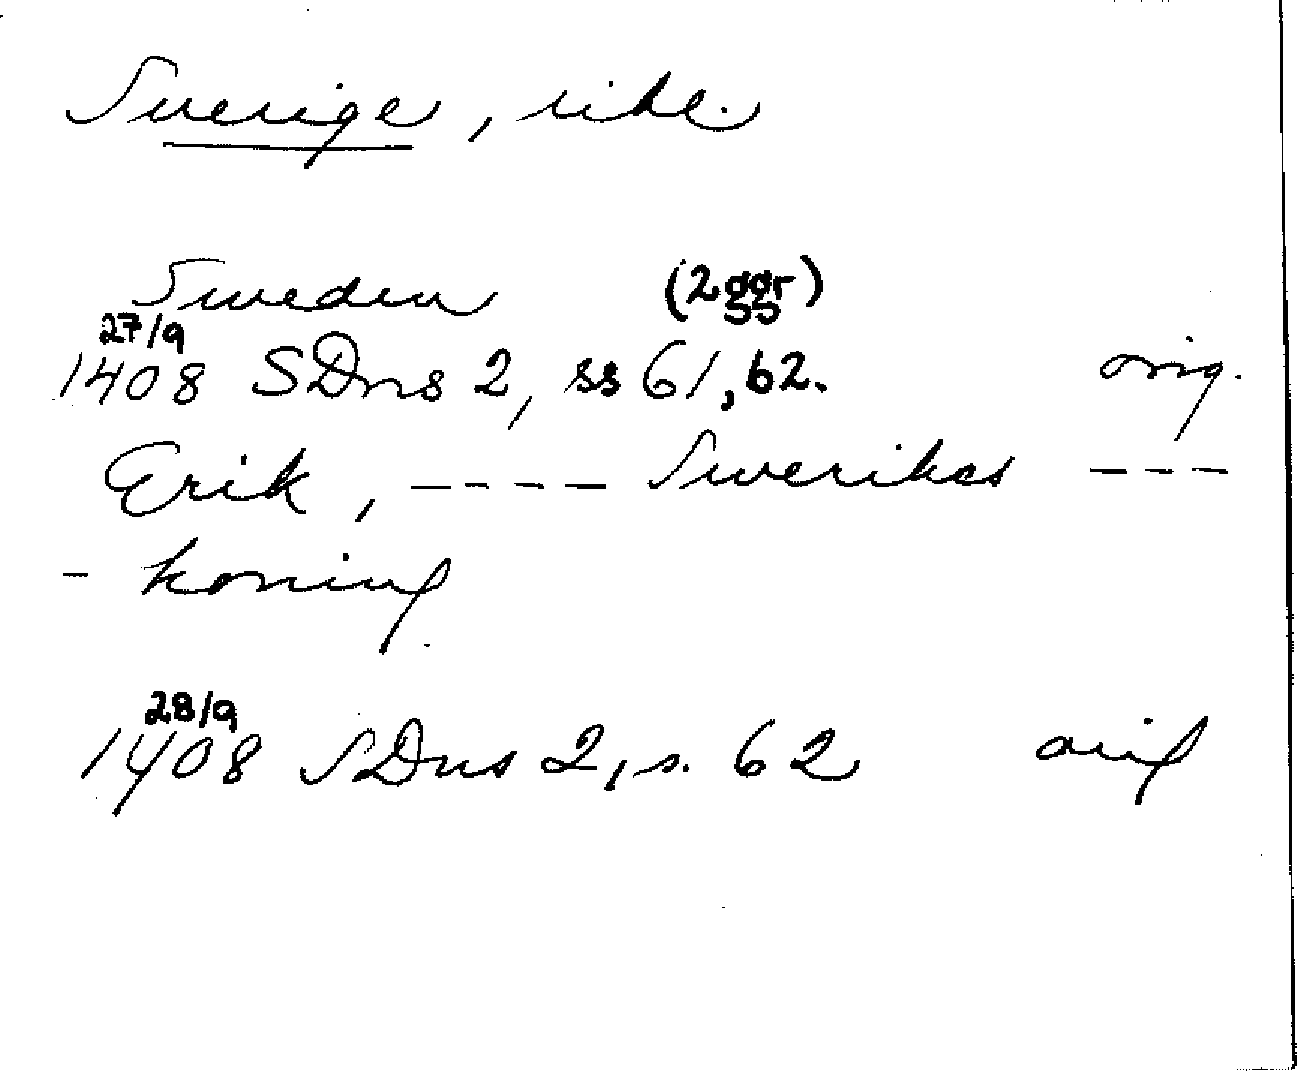 Sverige, rike.
Sweden (2ggr)
27/9
1408 SDns 2, ss 61, 62. orig.
Erik, ---- Swerikes ---
- koning
28/9
1408 SDns 2, s. 62 orig